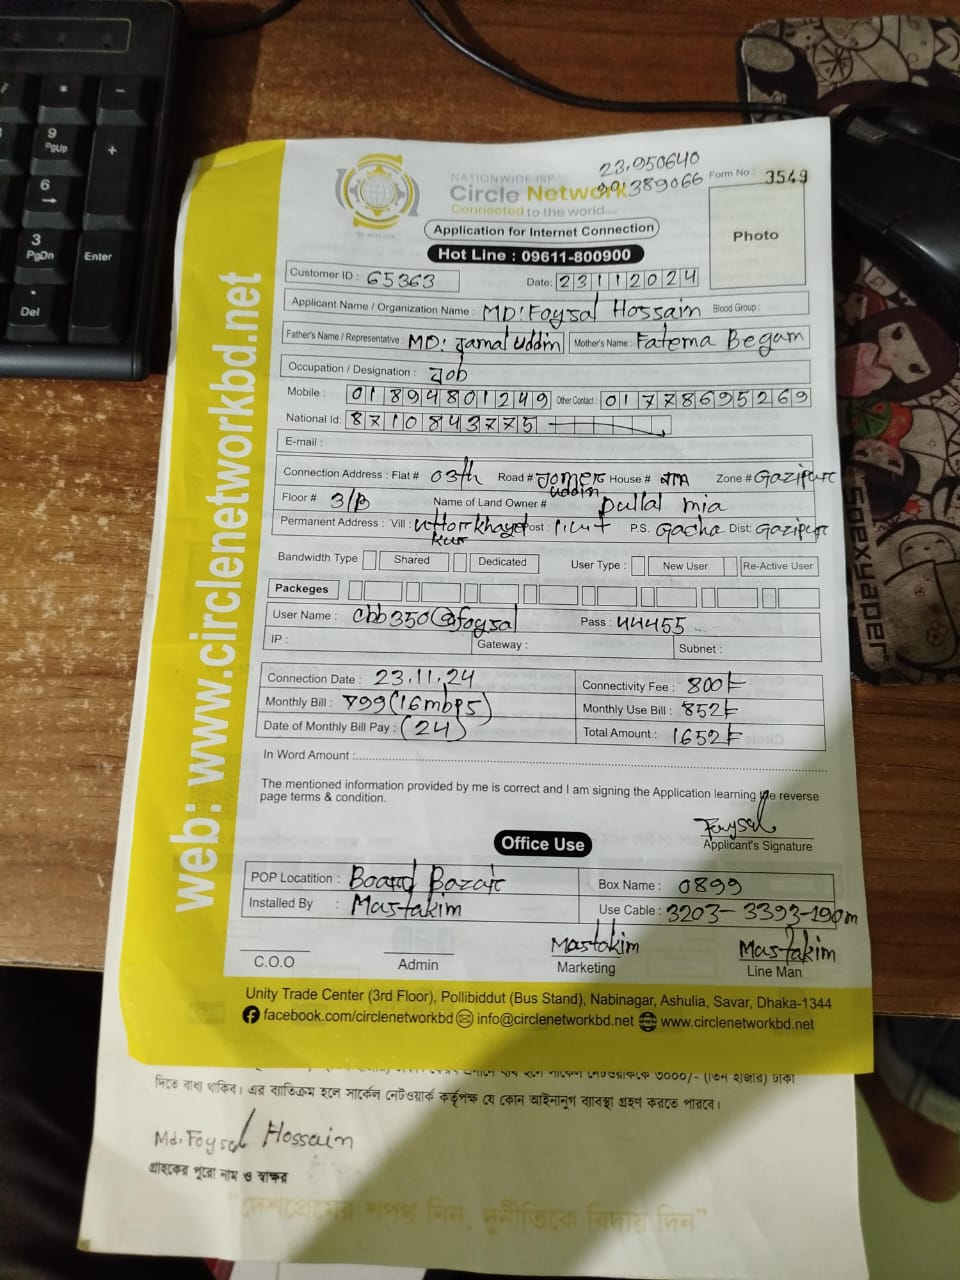 23.950640
NATIONWIDE ISP
Circle Network
991389066
Form No : 3549
Connected to the world....
Application for Internet Connection
Photo
Hot Line : 09611-800900
Customer ID : 65363
Date: 23112024
Applicant Name / Organization Name : MD: Foysal Hossain Blood Group :
Father's Name / Representative : MD: Jamal Uddin Mother's Name : Fatema Begam
Occupation / Designation : Job
Mobile : 01894801249 Other Contact : 01778695269
National Id: 8710843775
E-mail :
Connection Address : Flat # 03th Road # Jomer uddin House # NA Zone # Gazipur
Floor # 3/B Name of Land Owner # Dullal mia
Permanent Address : Vill : Uttorkhayel kur Post : P.S. Gacha Dist: Gazipur
Bandwidth Type Shared Dedicated User Type : New User Re-Active User
Packeges
User Name : cbb350@foysal Pass : 44455
IP : Gateway : Subnet :
Connection Date : 23.11.24 Connectivity Fee : 800/-
Monthly Bill : 799 (16mbps) Monthly Use Bill : 852/-
Date of Monthly Bill Pay : (24) Total Amount : 1652/-
In Word Amount :
The mentioned information provided by me is correct and I am signing the Application learning the reverse
page terms & condition.
Foysal
Applicant's Signature
Office Use
POP Locatition : Board Bazar Box Name : 0899
Installed By : Mastakim Use Cable : 3203-3393-190m
Mastakim Mastakim
C.O.O Admin Marketing Line Man
Unity Trade Center (3rd Floor), Pollibiddut (Bus Stand), Nabinagar, Ashulia, Savar, Dhaka-1344
facebook.com/circlenetworkbd info@circlenetworkbd.net www.circlenetworkbd.net
web: www.circlenetworkbd.net
সার্কেল নেটওয়ার্ককে ৩০০০/- (তিন হাজার) টাকা
দিতে বাধ্য থাকিব। এর ব্যতিক্রম হলে সার্কেল নেটওয়ার্ক কর্তৃপক্ষ যে কোন আইনানুগ ব্যাবস্থা গ্রহণ করতে পারবে।
Md. Foysal Hossain
গ্রাহকের পুরো নাম ও স্বাক্ষর
"দেশপ্রেমের শপথ নিন, দুর্নীতিকে বিদায় দিন"
*
-
9
PgUp
+
6
3
PgDn
Enter
.
Del